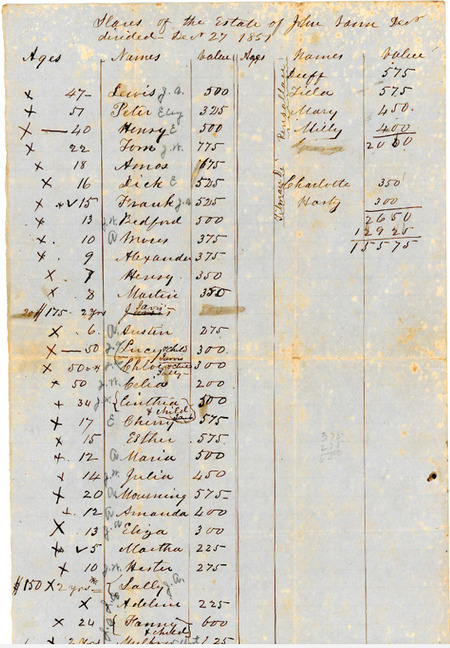 Slaves of the Estate of John Dec^d
divided Dec^r 27 1851
Ages Names Value Ages Names Value
x 47 Lewis J.W. 500
x 51 Peter Eliz 325
x 40 Henry E 500
x 22 Tom J.W. 775
x 18 Amos 675
x 16 Dick E 525
x v 15 Frank 525
x 13 J.W. Bedford 500
x 10 a 375
x 9 Alexander 375
x 7 Henry 350
x 8 Martin 350
$175 2 yrs
x 6 a Austin 275
x 50 Lucy & child 300
x 50 Chloe 300
Sally
+ 50 J.W. Celia 200
+ 34 Cinthia 500
& child
x 17 E Cherry 575
x 15 Esther 575
+ 12 a Maria 500
x 14 J.W. Julia 450
x 20 a Mourning 575
x 12 a Amanda 400
x 13 Eliza 300
+ v 5 Martha 225
x 10 J.W. Hester 275
$150 x 2 yrs Sally
x Adeline 225
x 24 Fanny 600
& child
2 yrs 125
Duff 575
575
Mary 450
Milly 400
2000
Charlotte 350
300
2650
12925
15575
375